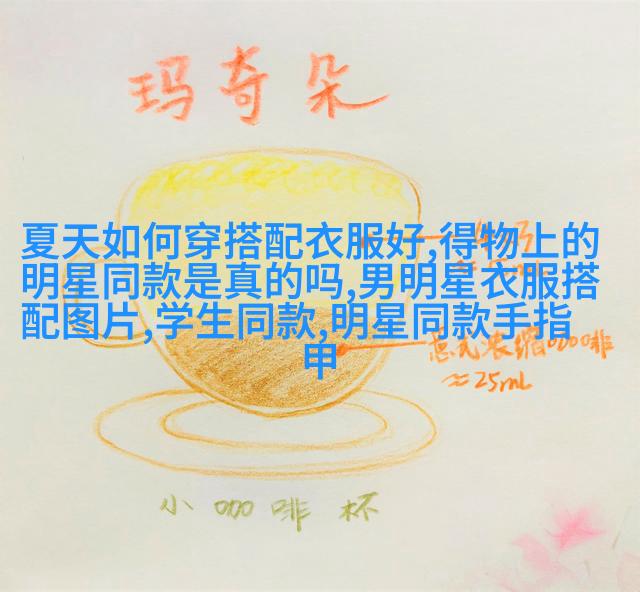 玛奇朵
夏天如何穿搭配衣服好,得物上的
明星同款是真的吗,男明星衣服搭
配图片,学生同款,明星同款手指
甲
浓缩咖啡
≈25mL
小咖啡杯